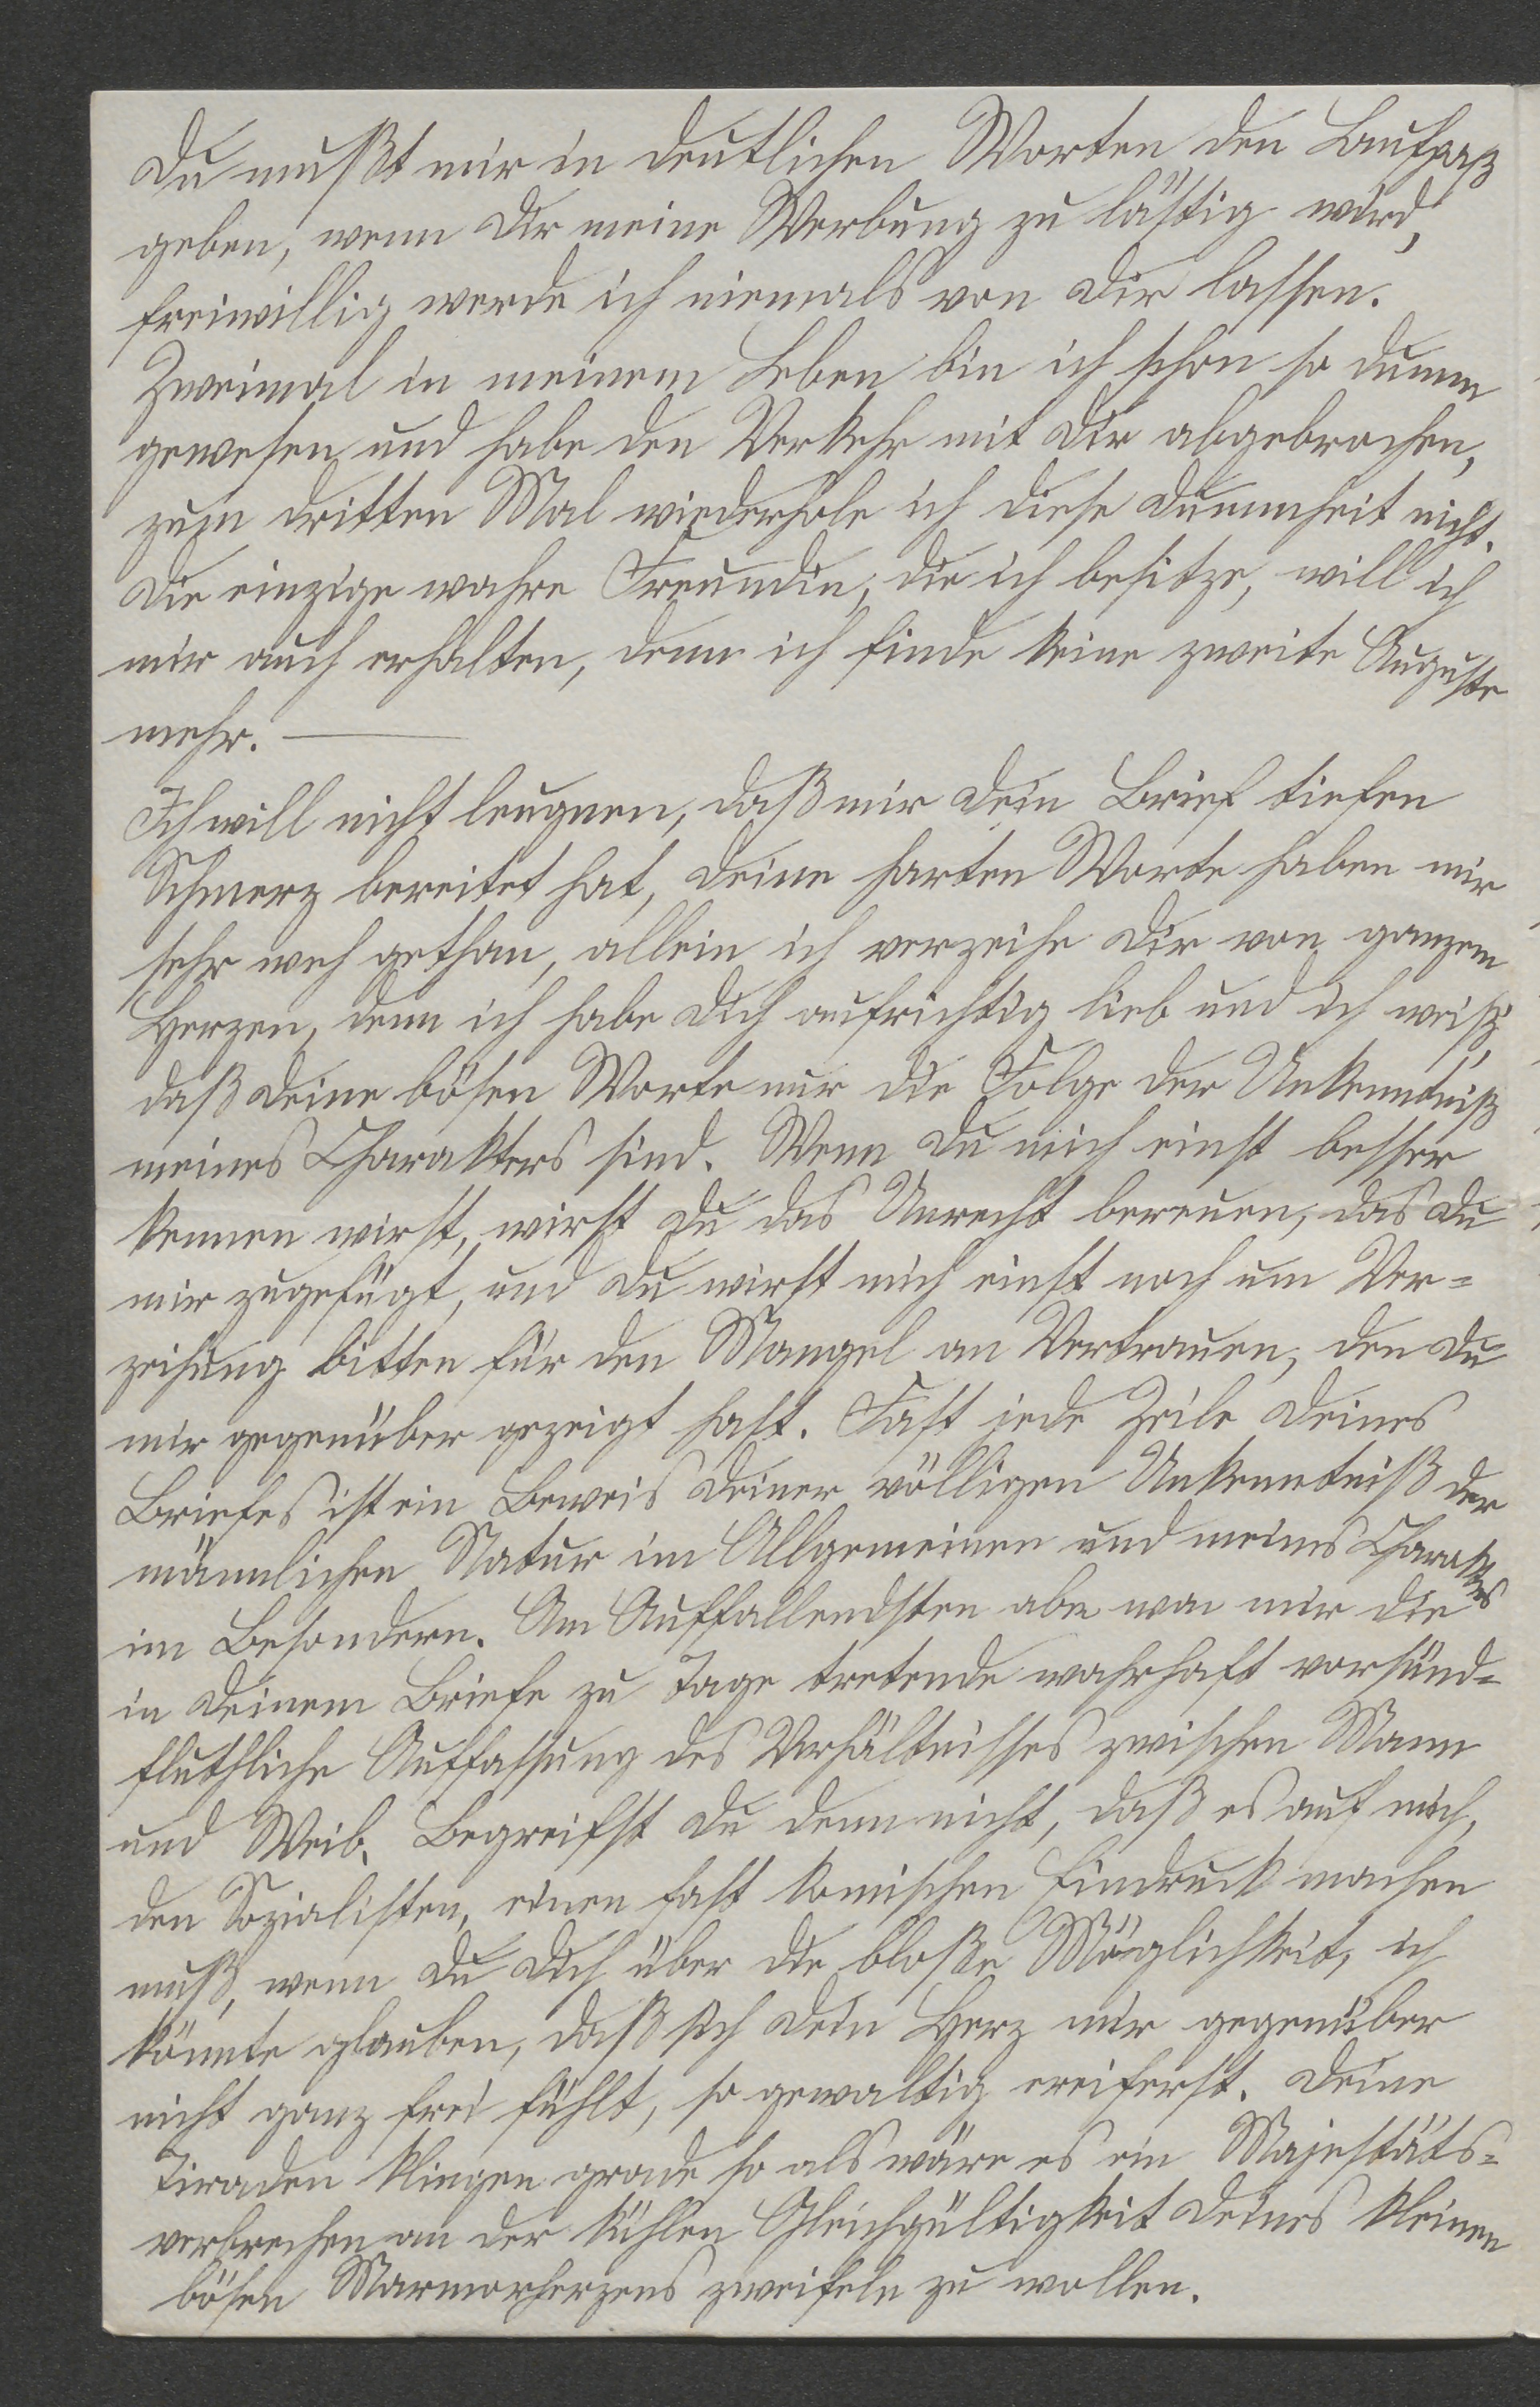 Du mußt mir in deutlichen Worten den Laufpaß
geben, wenn Dir meine Werbung zu lästig wird,
freiwillig werde ich niemals von Dir lassen.
Zweimal in meinem Leben bin ich schon so dumm
gewesen und habe den Verkehr mit Dir abgebrochen,
zum dritten Mal wiederhole ich diese Dummheit nicht.
Die einzige wahre Freundin, die ich besitze, will ich
mir auch erhalten, denn ich finde keine zweite Auguste
mehr. —
Ich will nicht leugnen, daß mir Dein Brief tiefen
Schmerz bereitet hat, Deine harten Worte haben mir
sehr weh gethan, allein ich verzeihe Dir von ganzem
Herzen, denn ich habe Dich aufrichtig lieb und ich weiß,
daß Deine bösen Worte nur die Folge der Unkenntniß
meines Charakters sind. Wenn Du mich einst besser
kennen wirst, wirst Du das Unrecht bereuen, das Du
mir zugefügt, und Du wirst mich einst noch um Ver=
zeihung bitten für den Mangel an Vertrauen, den Du
mir gegenüber gezeigt hast. Fast jede Zeile Deines
Briefes ist ein Beweis Deiner völligen Unkenntniß der
männlichen Natur im Allgemeinen und meines Charakters
im Besondern. Am Auffallendsten aber war mir die
in Deinem Briefe zu Tage tretende wahrhaft vorsünd=
fluthliche Auffassung des Verhältnisses zwischen Mann
und Weib. Begreifst Du denn nicht, daß es auf mich,
den Sozialisten, einen fast komischen Eindruck machen
muß, wenn Du Dich über die bloße Möglichkeit, ich
könnte glauben, daß sich Dein Herz mir gegenüber
nicht ganz frei fühlt, so gewaltig ereiferst. Deine
Tiraden klingen grade so als wäre es ein Majestäts=
verbrechen an der kühlen Gleichgültigkeit Deines kleinen
bösen Marmorherzens zweifeln zu wollen.